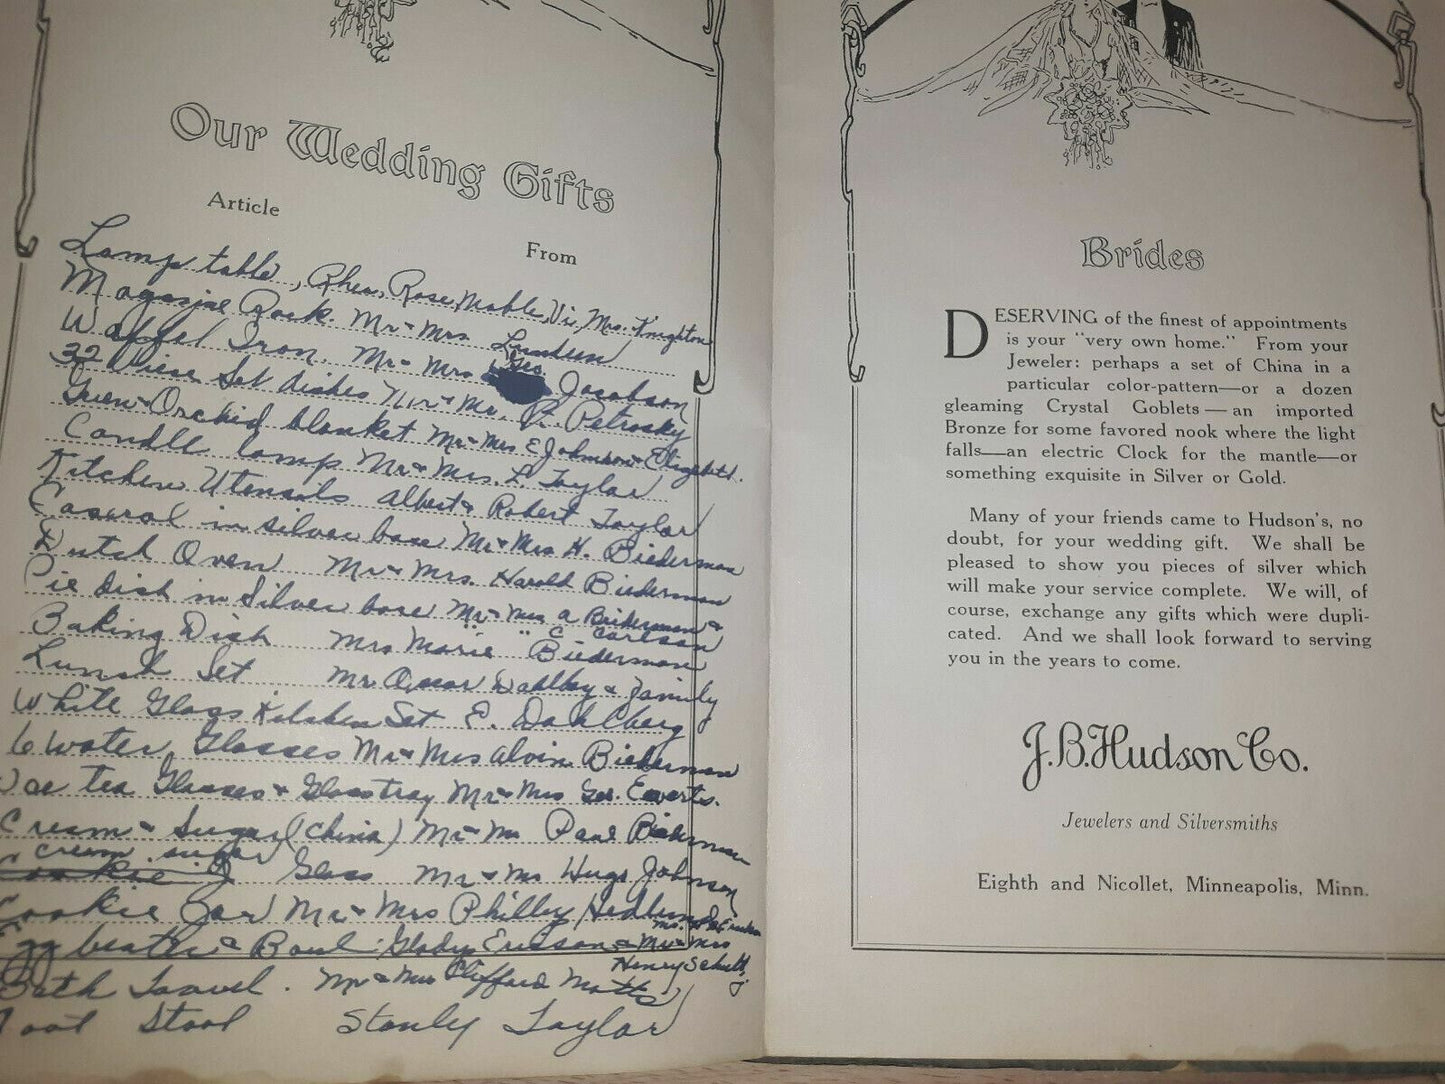 Our Wedding Gifts
Article
From
Lamp table, Rhea, Rose, Mable, Vi, Mrs. Knighton
Magazine Rack. Mr & Mrs Lundeen
Waffel Iron. Mr & Mrs Geo. Jacobson
32 Piece Set dishes Mr & Mr. P. Petrosky
Green & Orchid blanket Mr & Mrs E Johnson & Elizabeth.
Candle lamp Mr & Mrs. L Taylor
Kitchen Utensils Albert & Robert Taylor
Casural in silver base Mr & Mrs H. Biederman
Dutch Oven Mr & Mrs. Harold Biederman
Pie Dish in Silver base Mr & Mrs A Biederman &
" " C Carlson
Baking Dish Mrs Marie Biederman
Lunch Set Mr Oscar Dahlby & Family
White Glass Kitchen Set E. Dahlberg
6 Water Glasses Mr & Mrs Alvin Biederman
Ice tea Glasses & Glass tray Mr & Mrs Geo. Ewarts.
Cream & Sugar (China) Mr & Mrs Paul Biederman
cream sugar
Glass Mr & Mrs Hugo Johnson
Cookie Jar Mr & Mrs Philley Hedlund
Egg beater & Boul Gladys Ericson & Mr & Mrs
Henry Schultz
Bath Towel. Mr & Mrs Clifford Matts
Foot Stool Stanley Taylor
Brides
DESERVING of the finest of appointments
is your "very own home." From your
Jeweler: perhaps a set of China in a
particular color-pattern—or a dozen
gleaming Crystal Goblets—an imported
Bronze for some favored nook where the light
falls—an electric Clock for the mantle—or
something exquisite in Silver or Gold.
Many of your friends came to Hudson's, no
doubt, for your wedding gift. We shall be
pleased to show you pieces of silver which
will make your service complete. We will, of
course, exchange any gifts which were dupli-
cated. And we shall look forward to serving
you in the years to come.
J.B. Hudson Co.
Jewelers and Silversmiths
Eighth and Nicollet, Minneapolis, Minn.